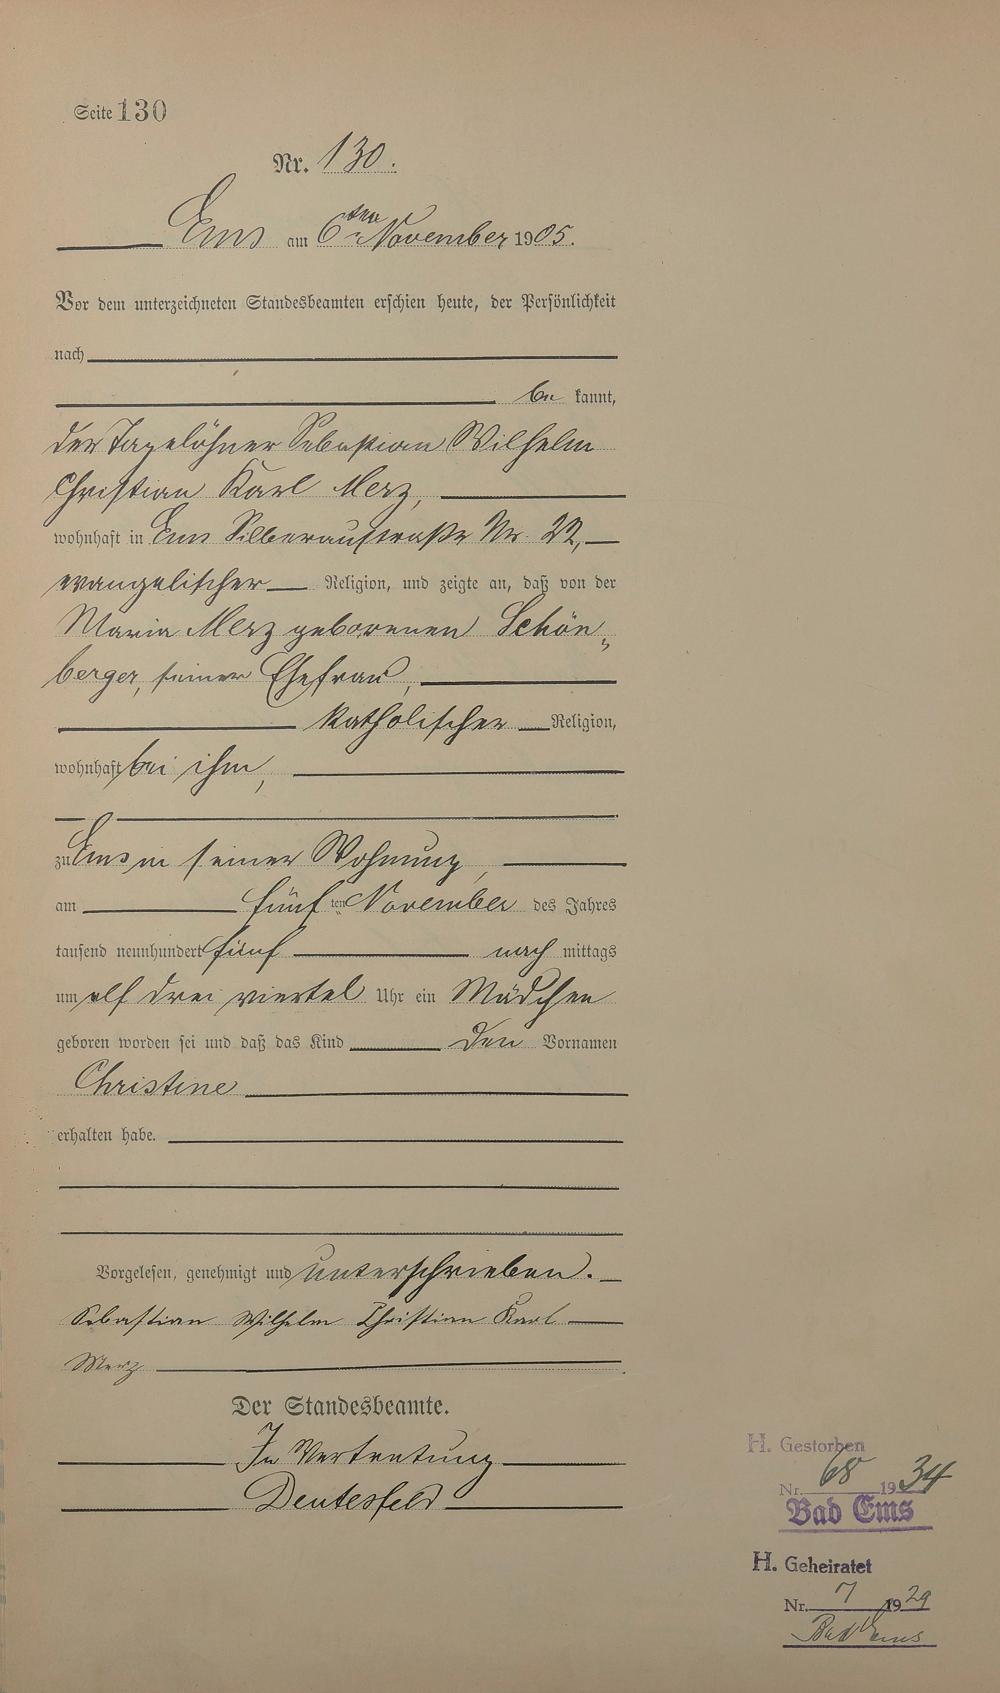 Seite 130
Nr. 130.
Ems am 6ten November 1905.
Vor dem unterzeichneten Standesbeamten erschien heute, der Persönlichkeit
nach
be kannt,
der Tagelöhner Sebastian Wilhelm
Christian Karl Merz,
wohnhaft in Ems Silberaustraße Nr. 22,
evangelischer Religion, und zeigte an, daß von der
Maria Merz geborenen Schön-
berger, seiner Ehefrau,
katholischer Religion,
wohnhaft bei ihm,
zu Ems in seiner Wohnung,
am fünften November des Jahres
tausend neunhundert fünf nach mittags
um elf drei viertel Uhr ein Mädchen
geboren worden sei und daß das Kind den Vornamen
Christine
erhalten habe.
Vorgelesen, genehmigt und unterschrieben.
Sebastian Wilhelm Christian Karl
Merz
Der Standesbeamte.
In Vertretung
Deutesfeld
H. Gestorben
Nr. 68 1934
Bad Ems
H. Geheiratet
Nr. 7 1929
Bad Ems